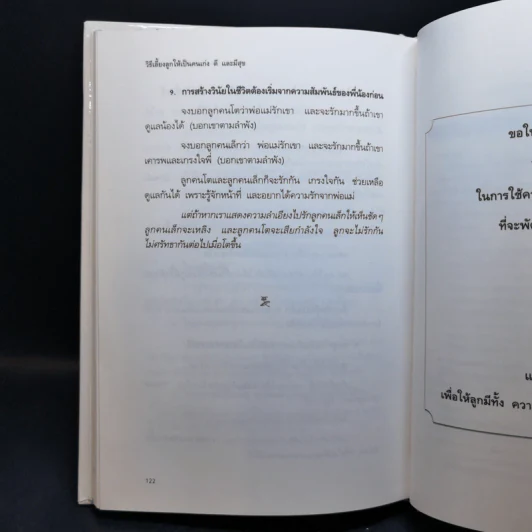 วิธีเลี้ยงลูกให้เป็นคนเก่ง ดี และมีสุข
๑. การสร้างวินัยในชีวิตต้องเริ่มจากความสัมพันธ์ของพี่น้องก่อน
จงบอกลูกคนโตว่าพ่อแม่รักเขา และจะรักมากขึ้นถ้าเขา
ดูแลน้องได้ (บอกเขาตามลำพัง)
จงบอกลูกคนเล็กว่า พ่อแม่รักเขา และจะรักมากขึ้นถ้าเขา
เคารพและเกรงใจพี่ (บอกเขาตามลำพัง)
ลูกคนโตและลูกคนเล็กก็จะรักกัน เกรงใจกัน ช่วยเหลือ
ดูแลกันได้ เพราะรู้จักหน้าที่ และอยากได้ความรักจากพ่อแม่
แต่ถ้าหากเราแสดงความลำเอียงไปรักลูกคนเล็กให้เห็นชัดๆ
ลูกคนเล็กจะเหลิง และลูกคนโตจะเสียกำลังใจ ลูกจะไม่รักกัน
ไม่ศรัทธากันต่อไปเมื่อโตขึ้น
122
ขอให้
ในการใช้คว
ที่จะพัด
แ
เพื่อให้ลูกมีทั้ง ควา